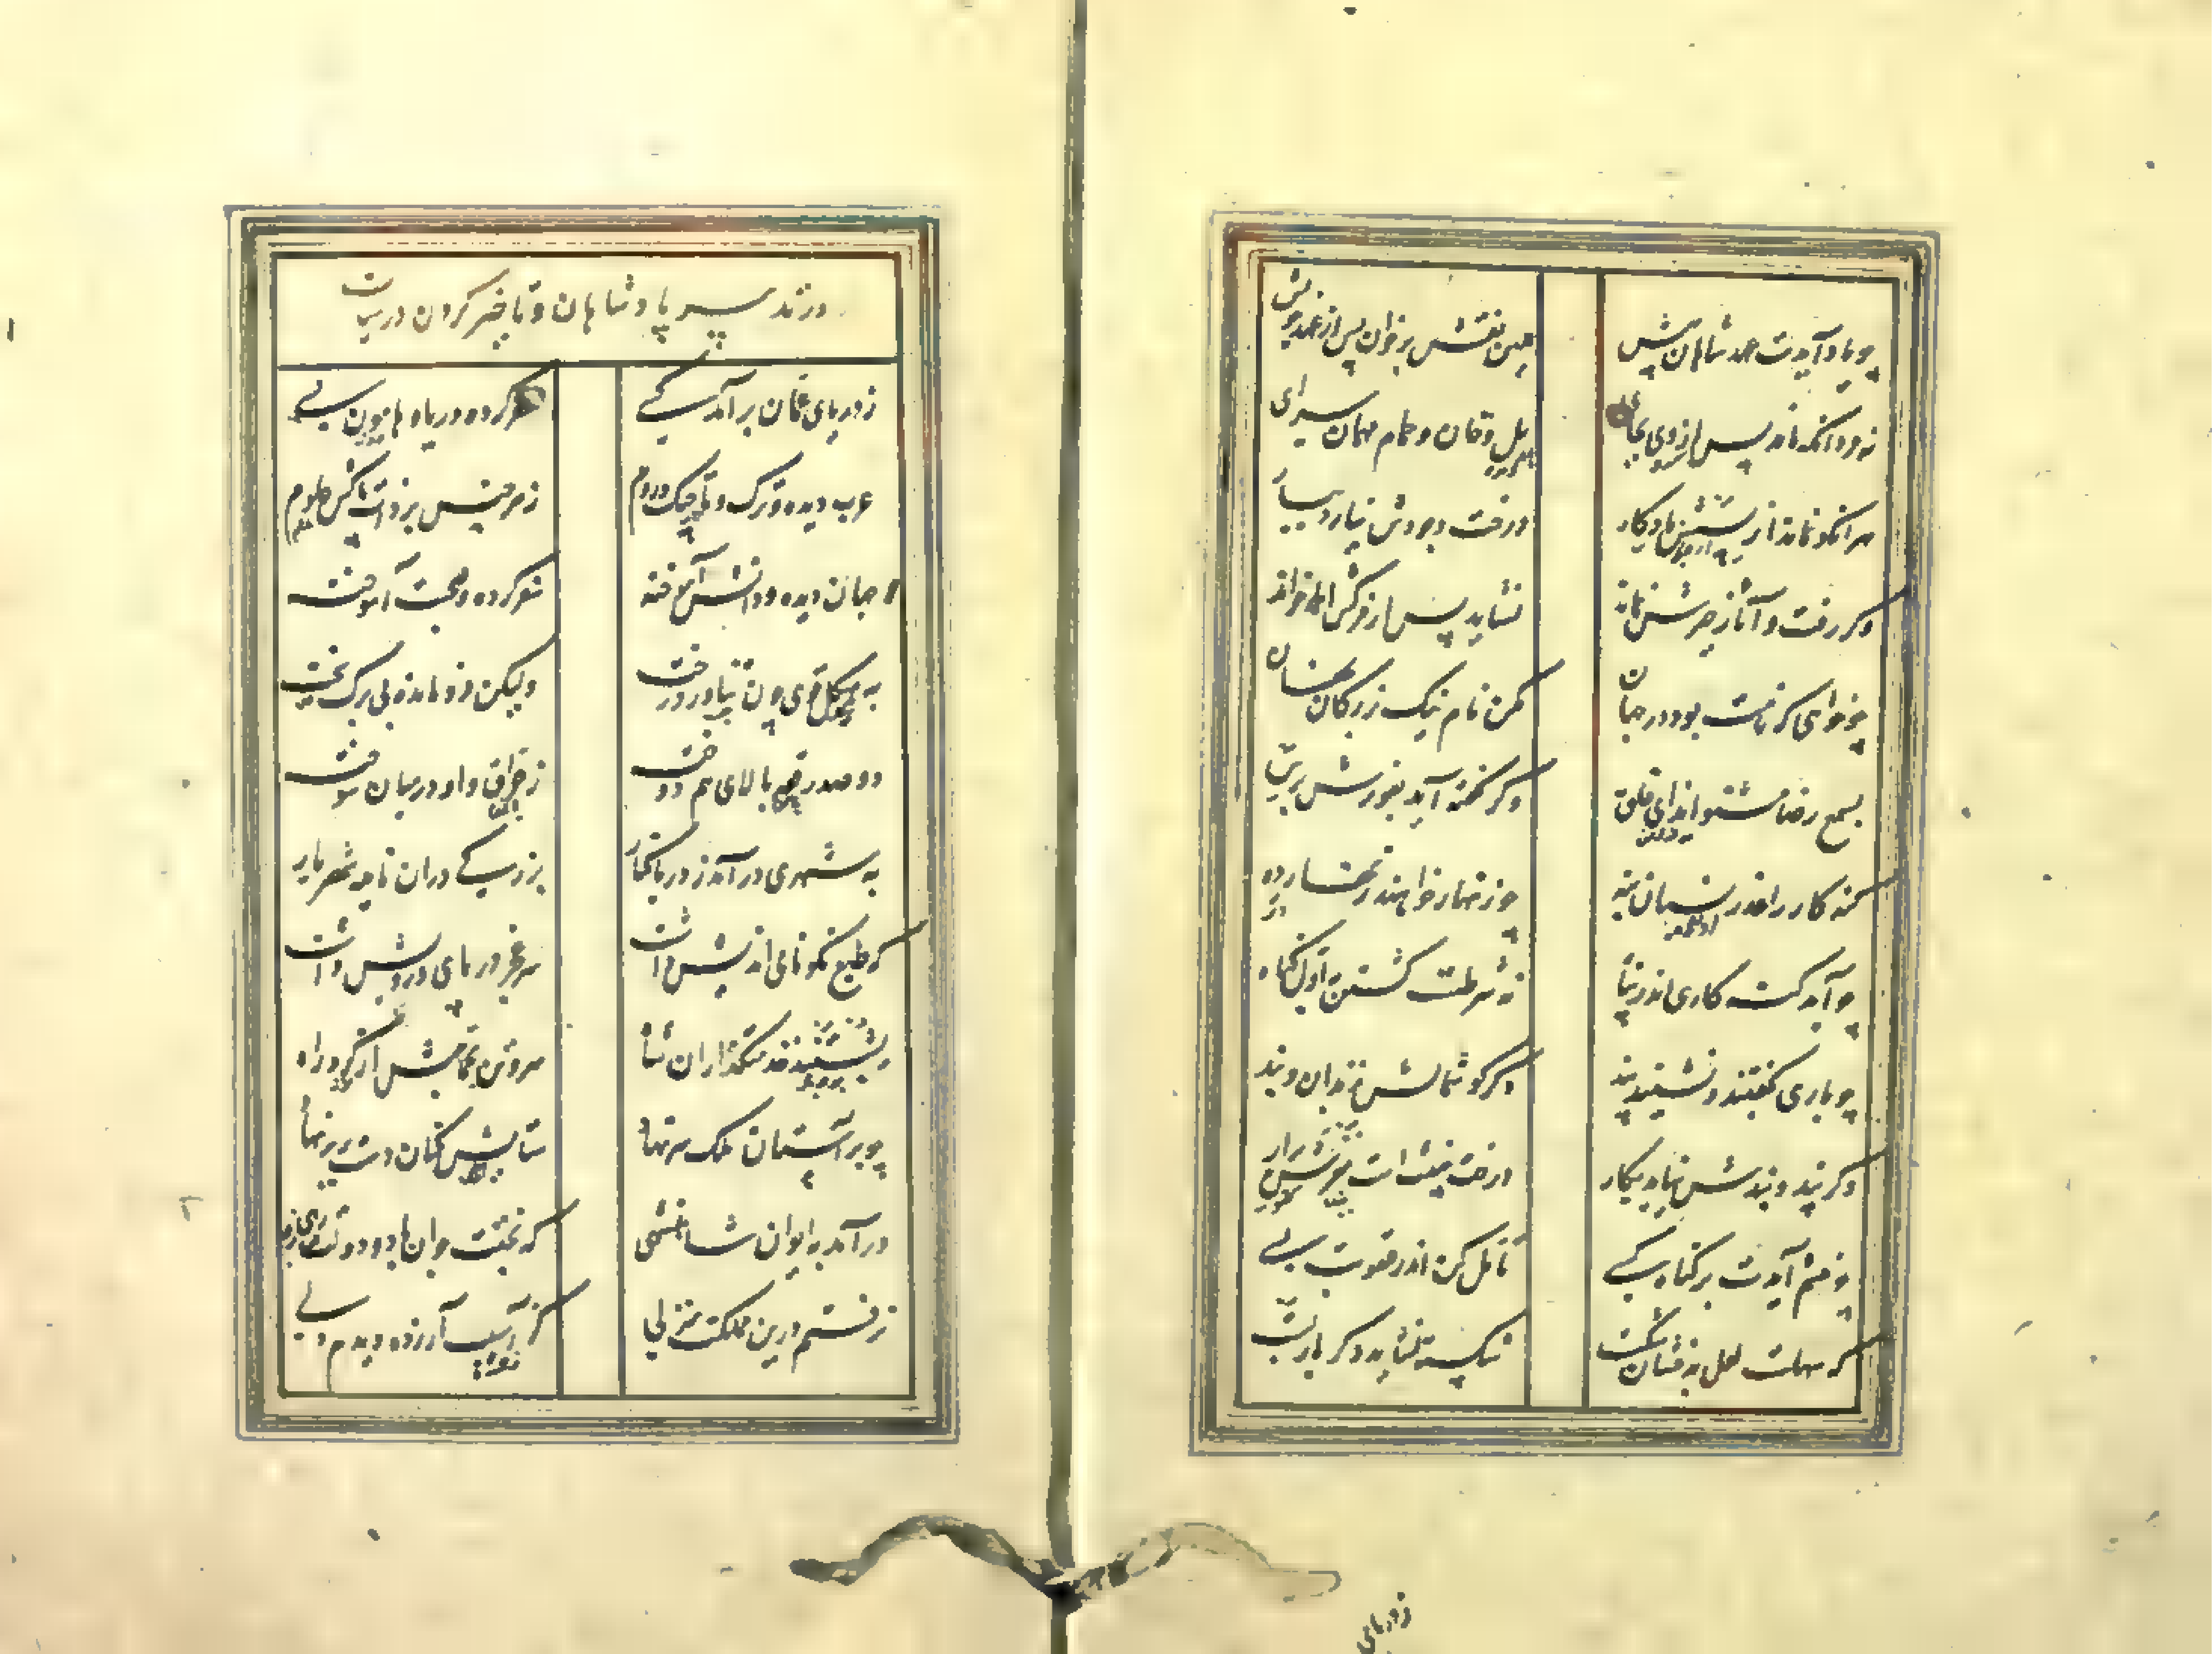 چو یاد آیدت عهد شاهان پیش
همین نقش برخوان پس از عهد خویش
نمرد آنکه ماند پس از وی بجای
پل و خان و مهمان سرای
هر آنکو نماند از پسش یادگار
درخت وجودش نیاورد بار
وگر رفت و آثار خیرش نماند
نشاید پس از مرگش الحمد خواند
چو خواهی که نامت بود در جهان
مکن نام نیک بزرگان نهان
بسمع رضا مشنو ایذای خلق
وگر گفته آید بغورش برس
گنه کار را عذر نسیان بنه
چو زنهار خواهند زنهار ده
چو آید گنه کاری اندر پناه
نه شرطست کشتن باول گناه
چو باری بگفتند و نشنید پند
دگر گوشمالش بزندان و بند
وگر پند و بندش نیاید بکار
درخت خبیث است بیخش برار
چو خشم آیدت بر گناه کسی
تأمل کن اندر عقوبت بسی
که سهلست لعل بدخشان شکست
شکسته نشاید دگر باره بست
زدریای
در تدبیر پادشاهان و تأخیر کردن در سیاست
ز دریای عمان برآمد کسی
سفر کرده دریا و هامون بسی
عرب دیده و ترک و تاجیک و روم
ز هر جنس در نفس پاکش علوم
جهان دیده و دانش آموخته
سفر کرده و صحبت آموخته
به هیکل قوی چون تناور درخت
ولیکن فرومانده بی برگ سخت
دو صد رقعه بالای هم دوخته
ز حراق و او در میان سوخته
به شهری درآمد ز دریا کنار
بزرگی دران ناحیه شهریار
که طبع نکو نامی اندیش داشت
سر عجز در پای درویش داشت
بشستند خدمتگذاران شاه
سر و تن بحمامش از گرد راه
چو بر آستان ملک سر نهاد
ستایش کنان دست بر بر نهاد
درآمد به ایوان شاهنشهی
که بختت جوان باد و دولت رهی
نرفتم درین مملکت منزلی
کز آسیب آزرده دیدم دلی